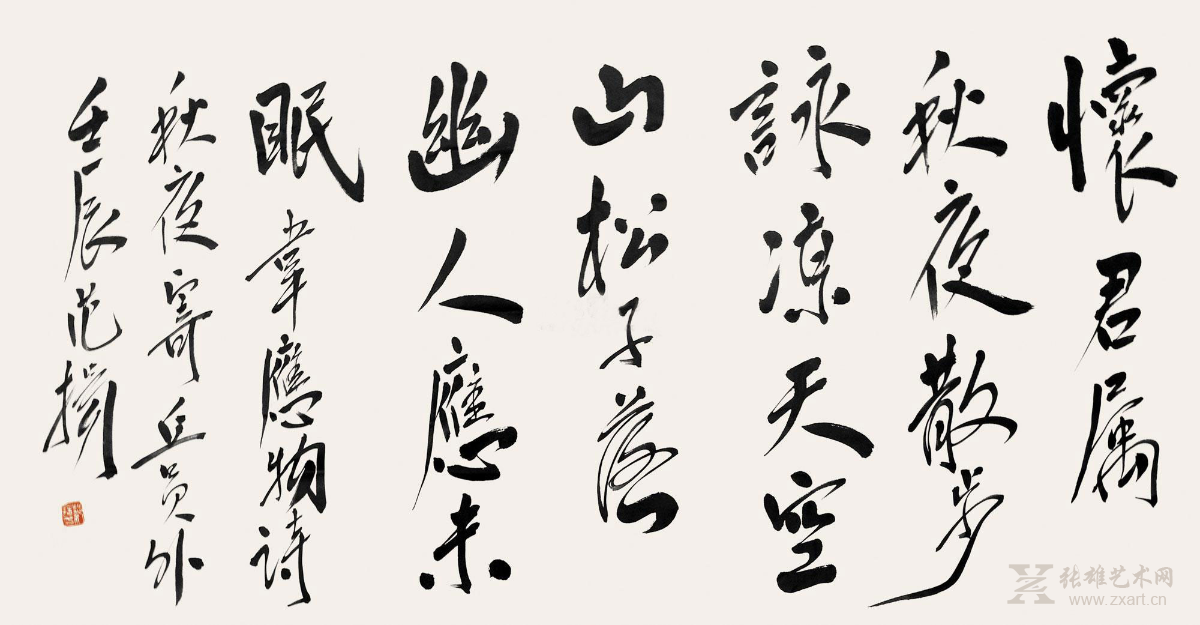 懷君属
秋夜散步
詠涼天空
山松子落
幽人應未
眠 韋應物詩
秋夜寄丘員外
壬辰范揚
张雄艺术网
www.zxart.cn